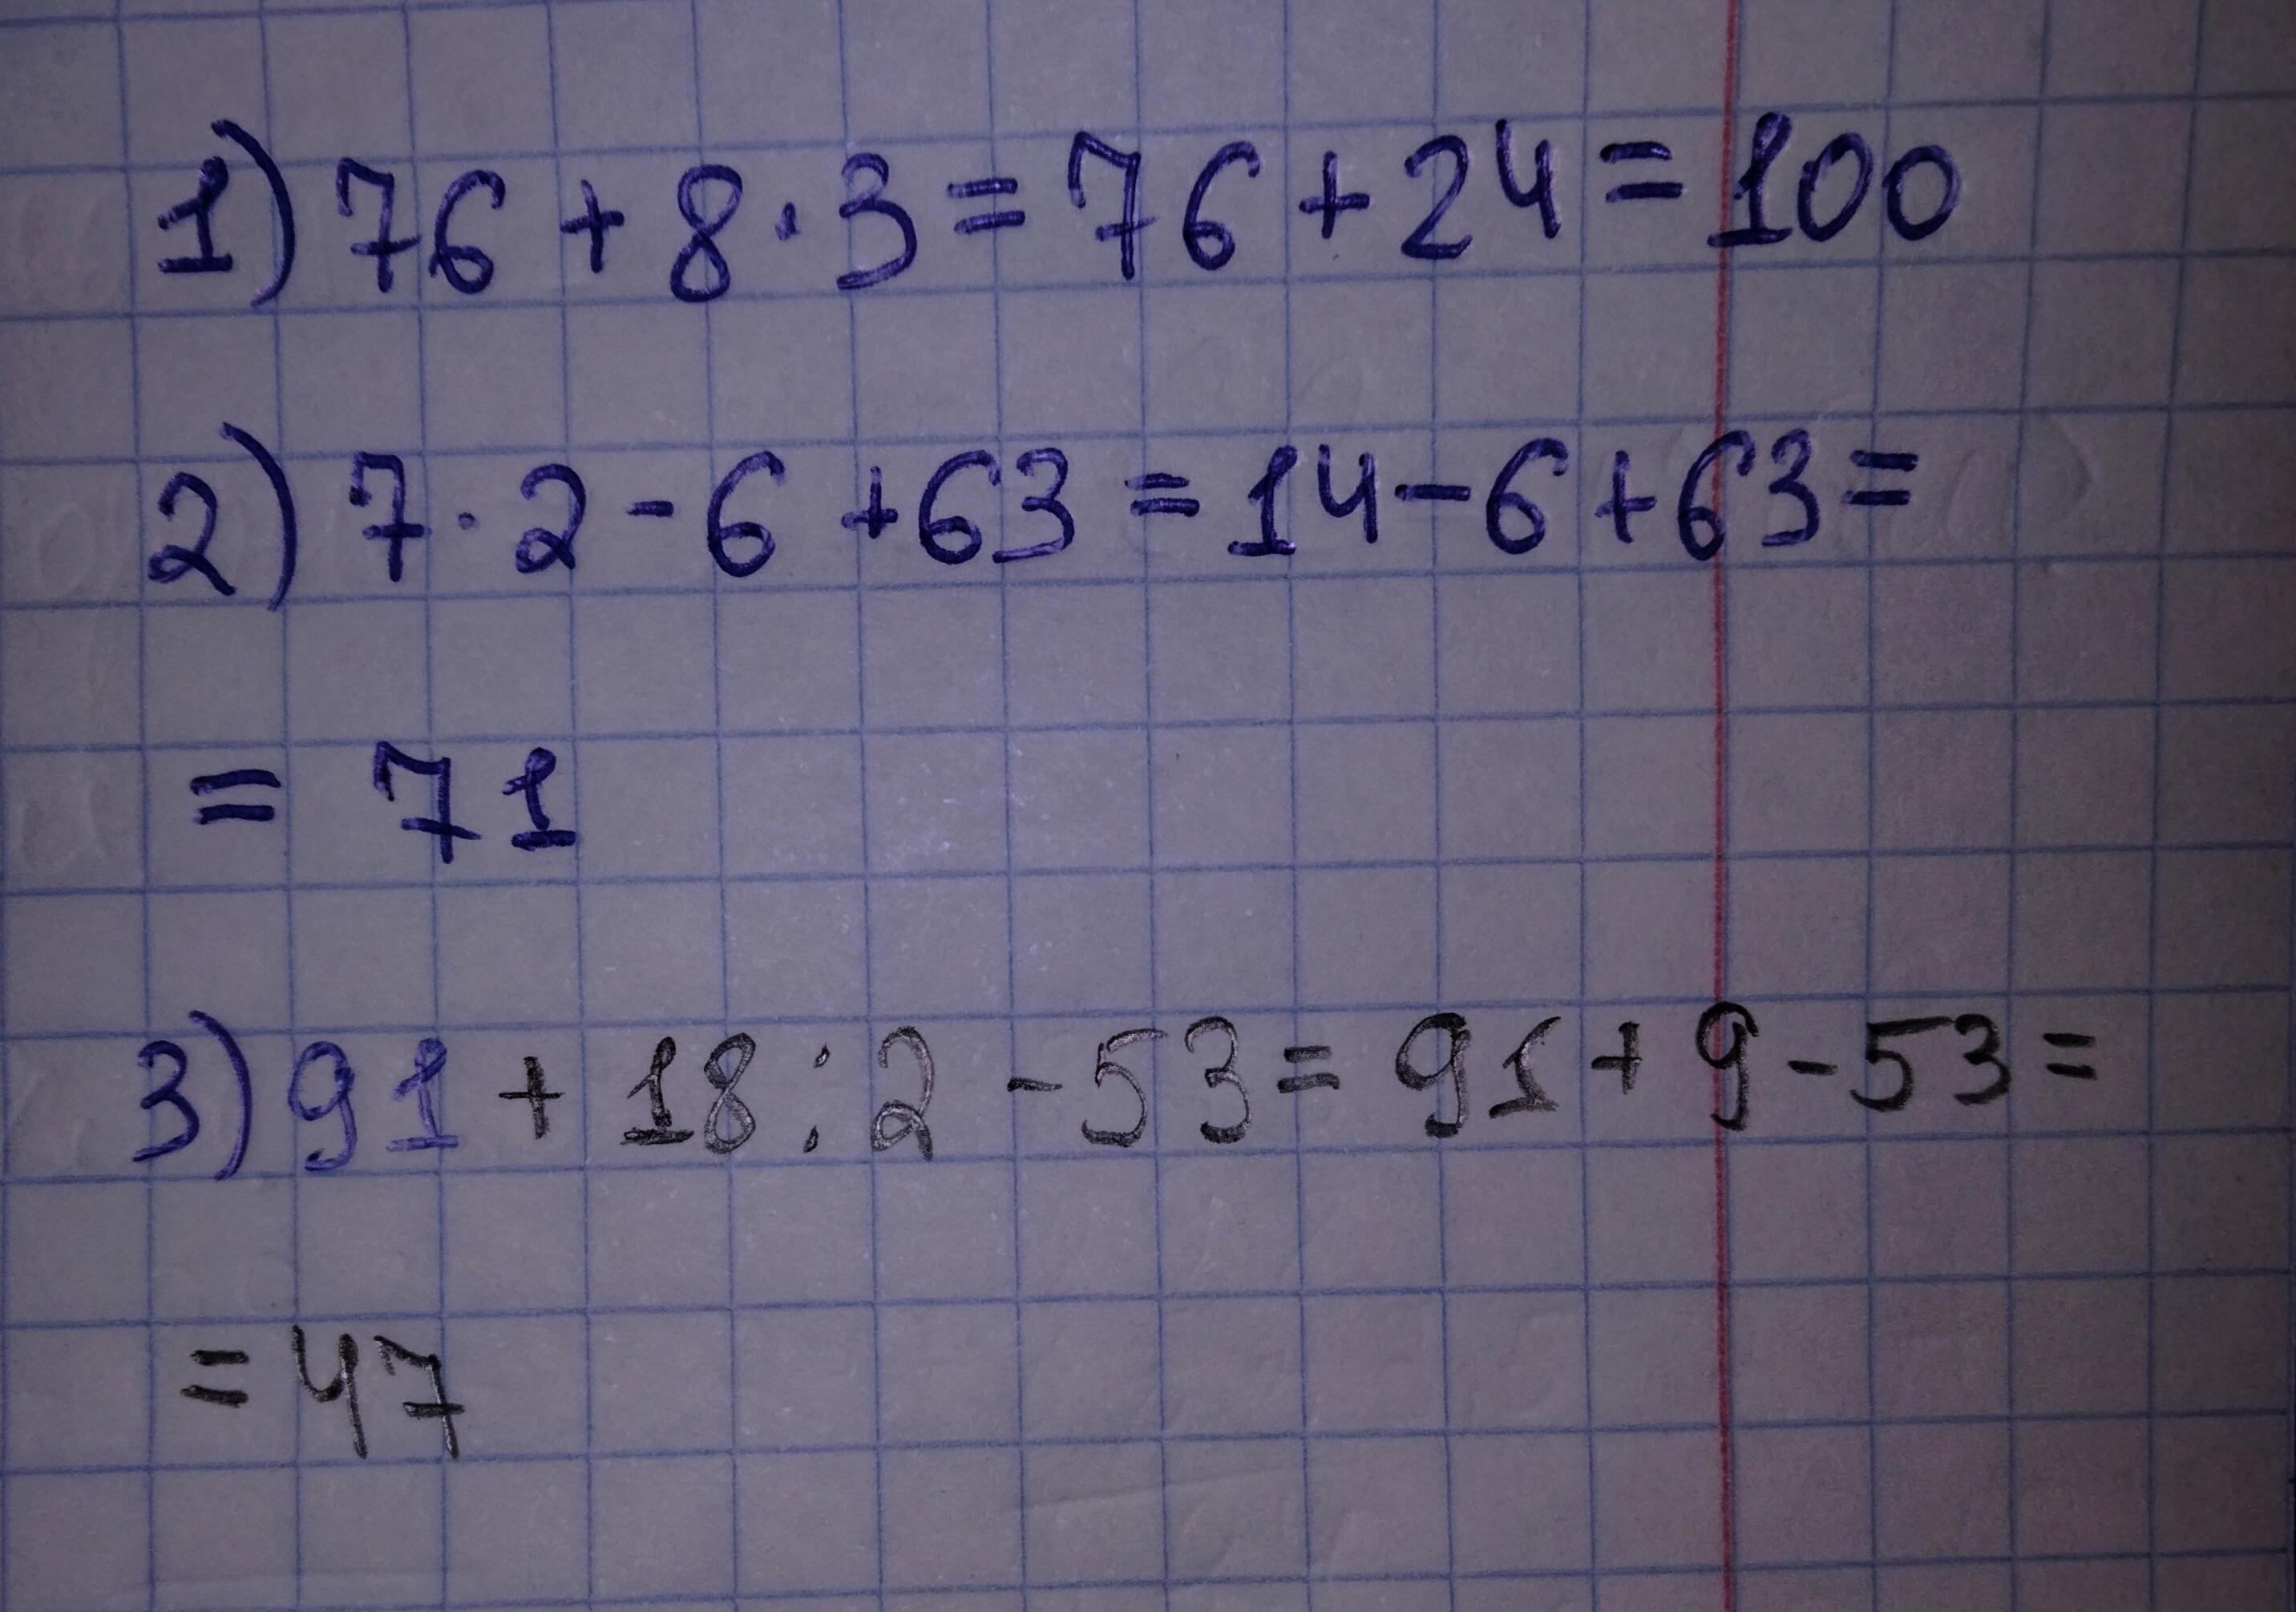 1) 76 + 8 · 3 = 76 + 24 = 100
2) 7 · 2 - 6 + 63 = 14 - 6 + 63 =
= 71
3) 91 + 18 : 2 - 53 = 91 + 9 - 53 =
= 47